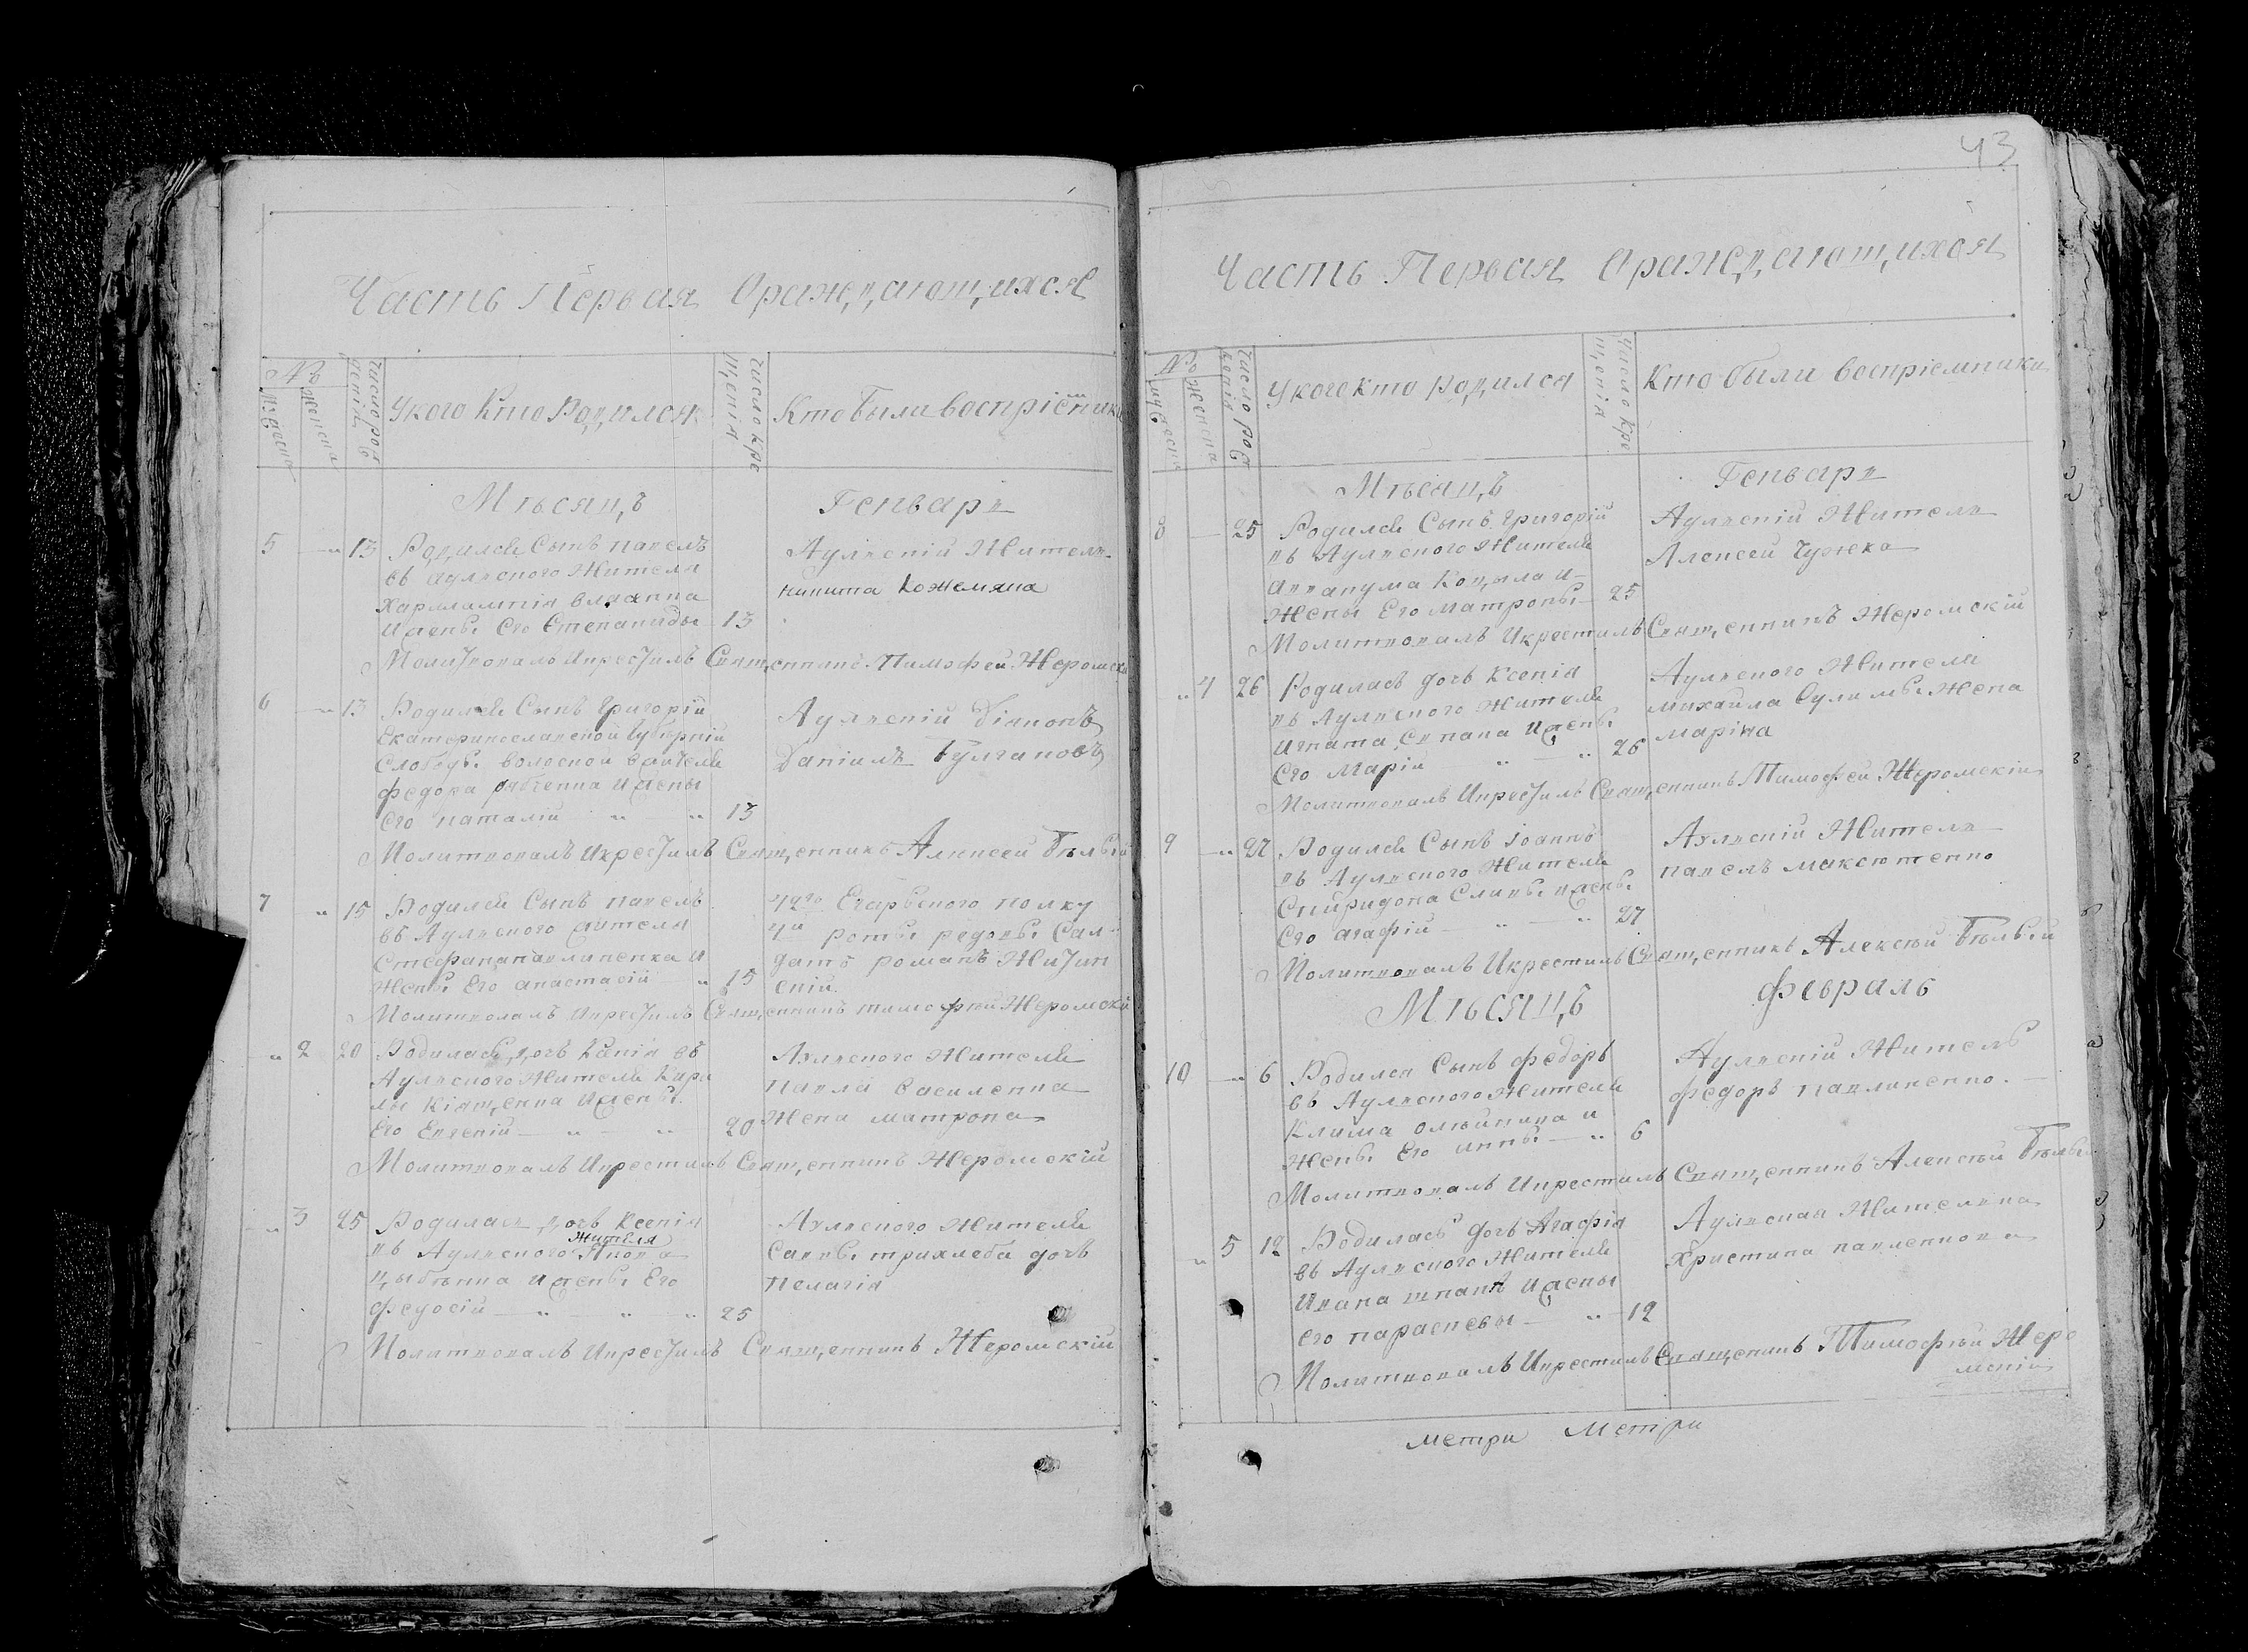 Часть Первая Ораждающихся
№
Мужеска
Женска
Число рож
денія
У кого Кто Родился
Число Кре
щенія
Кто Были Воспріемники
Мѣсяцъ Генварь
5 13 Родился Сынъ павелъ
въ аулвского Жителя
Харлампія
и жены Его Степаниды 13
Аулвскій Житель
никита Кожемяка
Молитвовалъ и крестилъ Священникъ Тимофей Жеромскій
6 13 Родился Сынъ Григорій
Екатеринославской Губерніи
Слободы
федора рябченка и жены
Его наталіи 13
Аулвскій Діаконъ
Даніилъ Булгаковъ
Молитвовалъ и крестилъ Священникъ Алексей Бѣлый
7 15 Родился Сынъ павелъ
въ Аулвского жителя
Стефана павлиненка и
Жены Его анастасіи 15
42го Егарьского полку
4й роты рядовы Сал
датъ романъ Житин
скій
Молитвовалъ и крестилъ Священникъ тимофѣй Жеромскій
2 20 Родилась дочь Ксенія въ
Аулвского Жителя Кири
лы Кіященка и жены
Его Евгеніи 20
Аулвского Жителя
павла василенка
Жена матрона
Молитвовалъ и крестилъ Священникъ Жеромскій
3 25 Родилась дочь Ксенія
въ Аулвского Жителя Якова
цыбѣнка и жены Его
федосіи 25
Аулвского Жителя
Саввы трихлеба дочь
пелагія
Молитвовалъ и крестилъ Священникъ Жеромскій
43
Часть Первая Ораждающихся
№
Мужеска
Женска
Число рож
денія
У кого кто родился
Число Кре
щенія
Кто были воспріемники
Мѣсяцъ Генварь
8 25 Родился Сынъ Григорій
въ Аулвского Жителя
Аввакума Коцила и
Жены Его матроны 25
Аулвскій Житель
Алексей Чужека
Молитвовалъ и крестилъ Священникъ Жеромскій
4 26 Родилась дочь Ксенія
въ Аулвского Жителя
Игната Сипака и жены
Его Маріи 26
Аулвского Жителя
михаила Сулимы Жена
маріна
Молитвовалъ и крестилъ Священникъ Тимофей Жеромскій
9 27 Родился Сынъ Іоаннъ
въ Аулвского Жителя
Спиридона Сливы и жены
Его агафіи 27
Аулвскій Житель
павелъ максютенко
Молитвовалъ и крестилъ Священникъ Алексѣй Бѣлый
Мѣсяцъ февраль
10 6 Родился Сынъ федоръ
въ Аулвского Жителя
Клима олѣйника и
Жены Его анны 6
Аулвскій Житель
федоръ павлиненко.
Молитвовалъ и крестилъ Священникъ Алексѣй Бѣлый
5 12 Родилась дочь Агафія
въ Аулвского Жителя
Ивана шпакѣ и жены
Его параскевы 12
Аулвская Жителька
Христина павленкова
Молитвовалъ и крестилъ Священикъ Тимофѣй Жеро
мскій
метри Метри